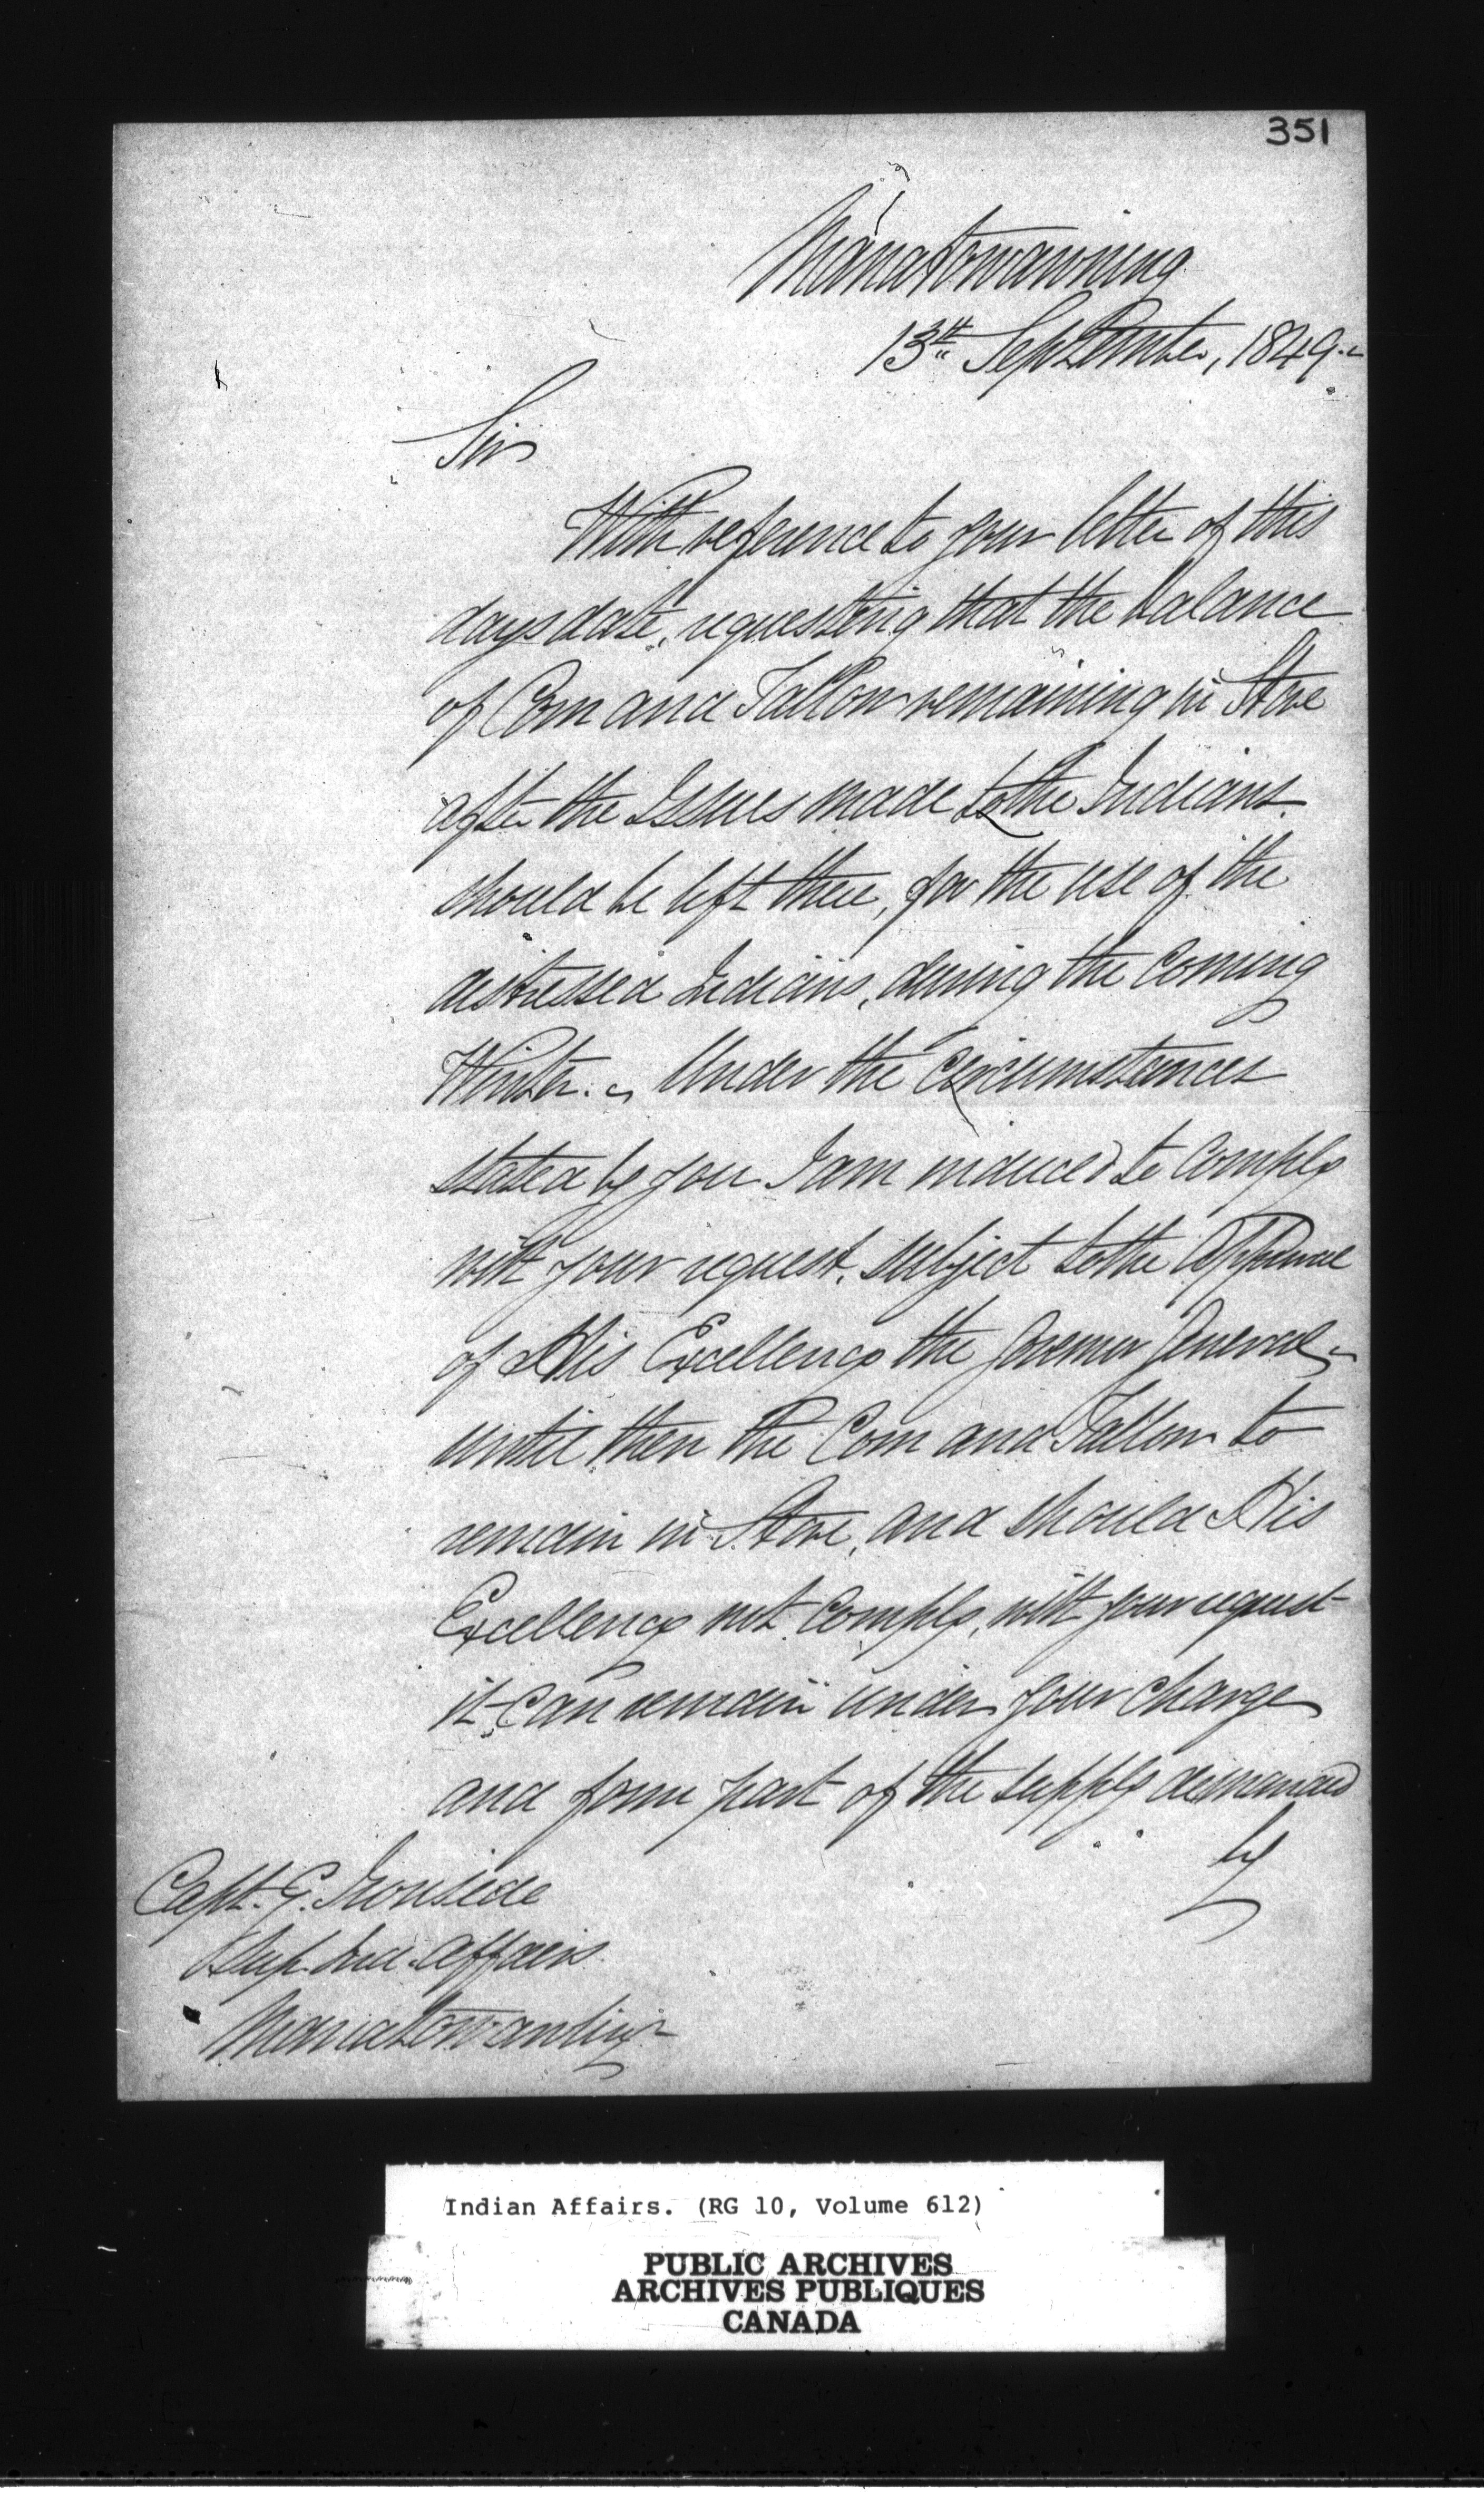 351
Manatowawning
13th September, 1849.
Sir
With reference to your letter of this
days date, requesting that the balance
of Corn and Tallow remaining in Store
after the Issues made to the Indians
should be left there, for the use of the
distressed Indians, during the coming
Winter. Under the Circumstances
stated by you I am induced to Comply
with your request, subject to the Approval
of His Excellency the Governor General,
until then the Corn and Tallow to
remain in Store, and should His
Excellency not Comply, with your request
it can remain under your charge
and form part of the supply demanded
by
Capt. G. Ironside
Sup. Ind. Affairs
Manatowaning
Indian Affairs. (RG 10, Volume 612)
PUBLIC ARCHIVES
ARCHIVES PUBLIQUES
CANADA